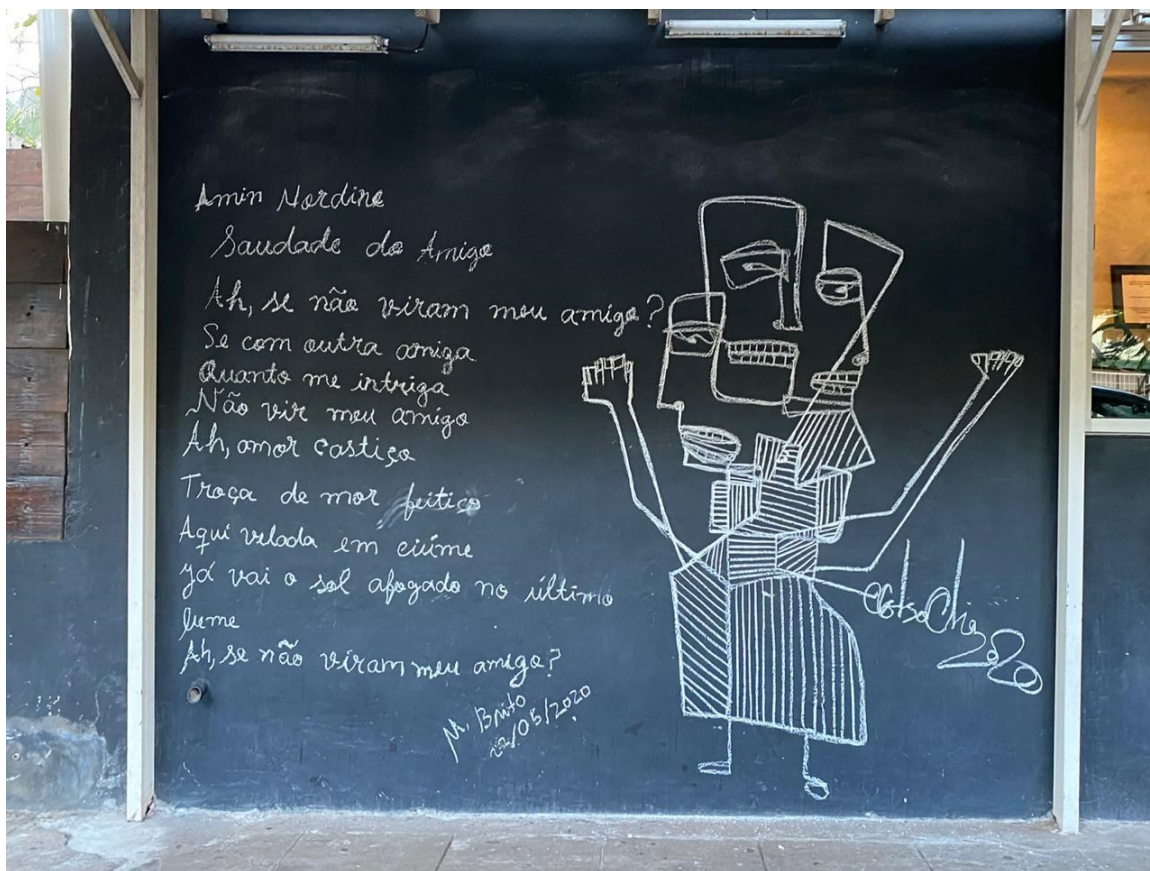 Amin Nordine
Saudade do Amigo
Ah, se não viram meu amigo?
Se com outra amiga
Quanto me intriga
Não vir meu amigo
Ah, amor castiço
Troça de mor feitiço
Aqui velada em ciúme
Já vai o sol afogado no último
lume
Ah, se não viram meu amigo?
M. Brito
22/05/2020
2020